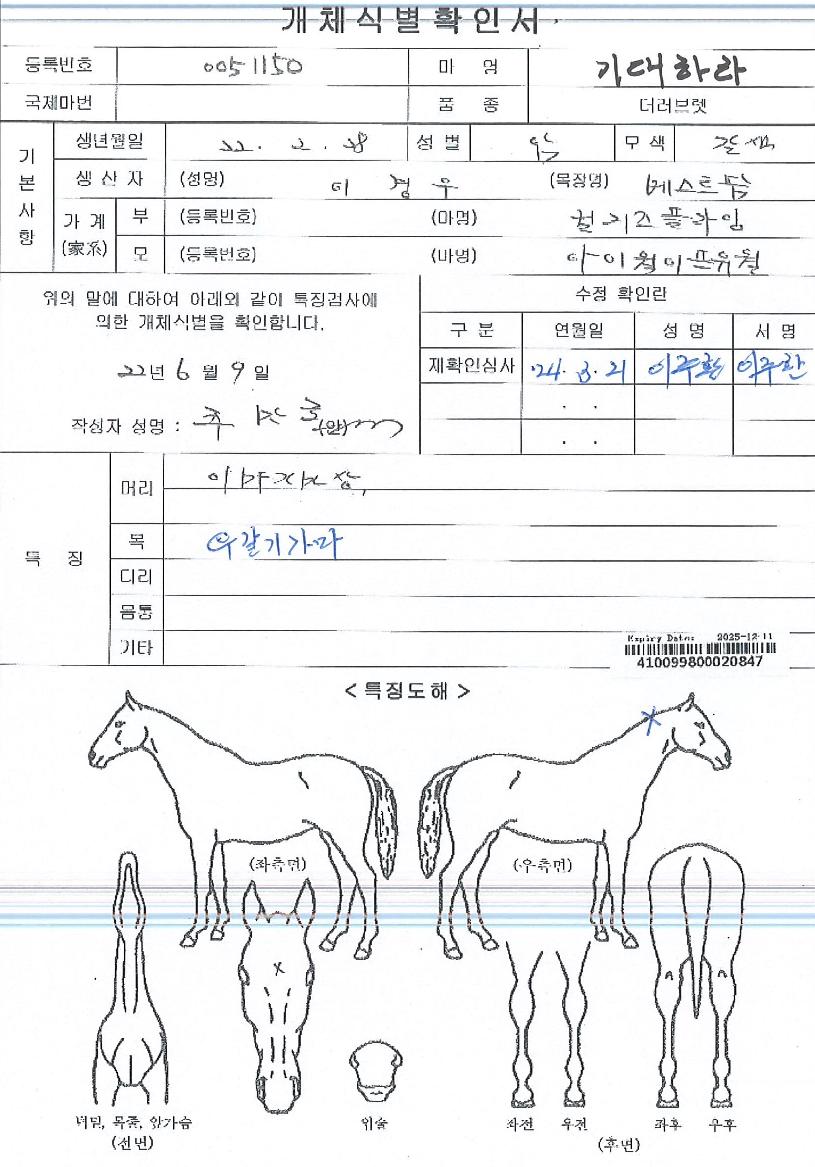 개체식별확인서
등록번호 0051150 마 명 기대하라
국제마번 품 종 더러브렛
기본사항
생년월일 22. 2. 28 성별 암 모색 갈색
생 산 자 (성명) 이 경 우 (목장명) 베스트팜
가계(家系) 부 (등록번호) (마명) 컬러즈플라잉
모 (등록번호) (마명) 아이월이프유월
위의 말에 대하여 아래와 같이 특징검사에
의한 개체식별을 확인합니다.
22년 6 월 9 일
작성자 성명 :
수정 확인란
구 분 연월일 성 명 서 명
재확인심사 '24. 3. 21 이주환 이주환
. .
. .
특 징
머리 이마
목 우갈기가마
다리
몸통
기타
Expiry Date: 2025-12-11
410099800020847
<특징도해>
(좌측면) (우측면)
턱밑, 목줄, 앞가슴
(전면)
위술
좌전 우전 좌후 우후
(후면)